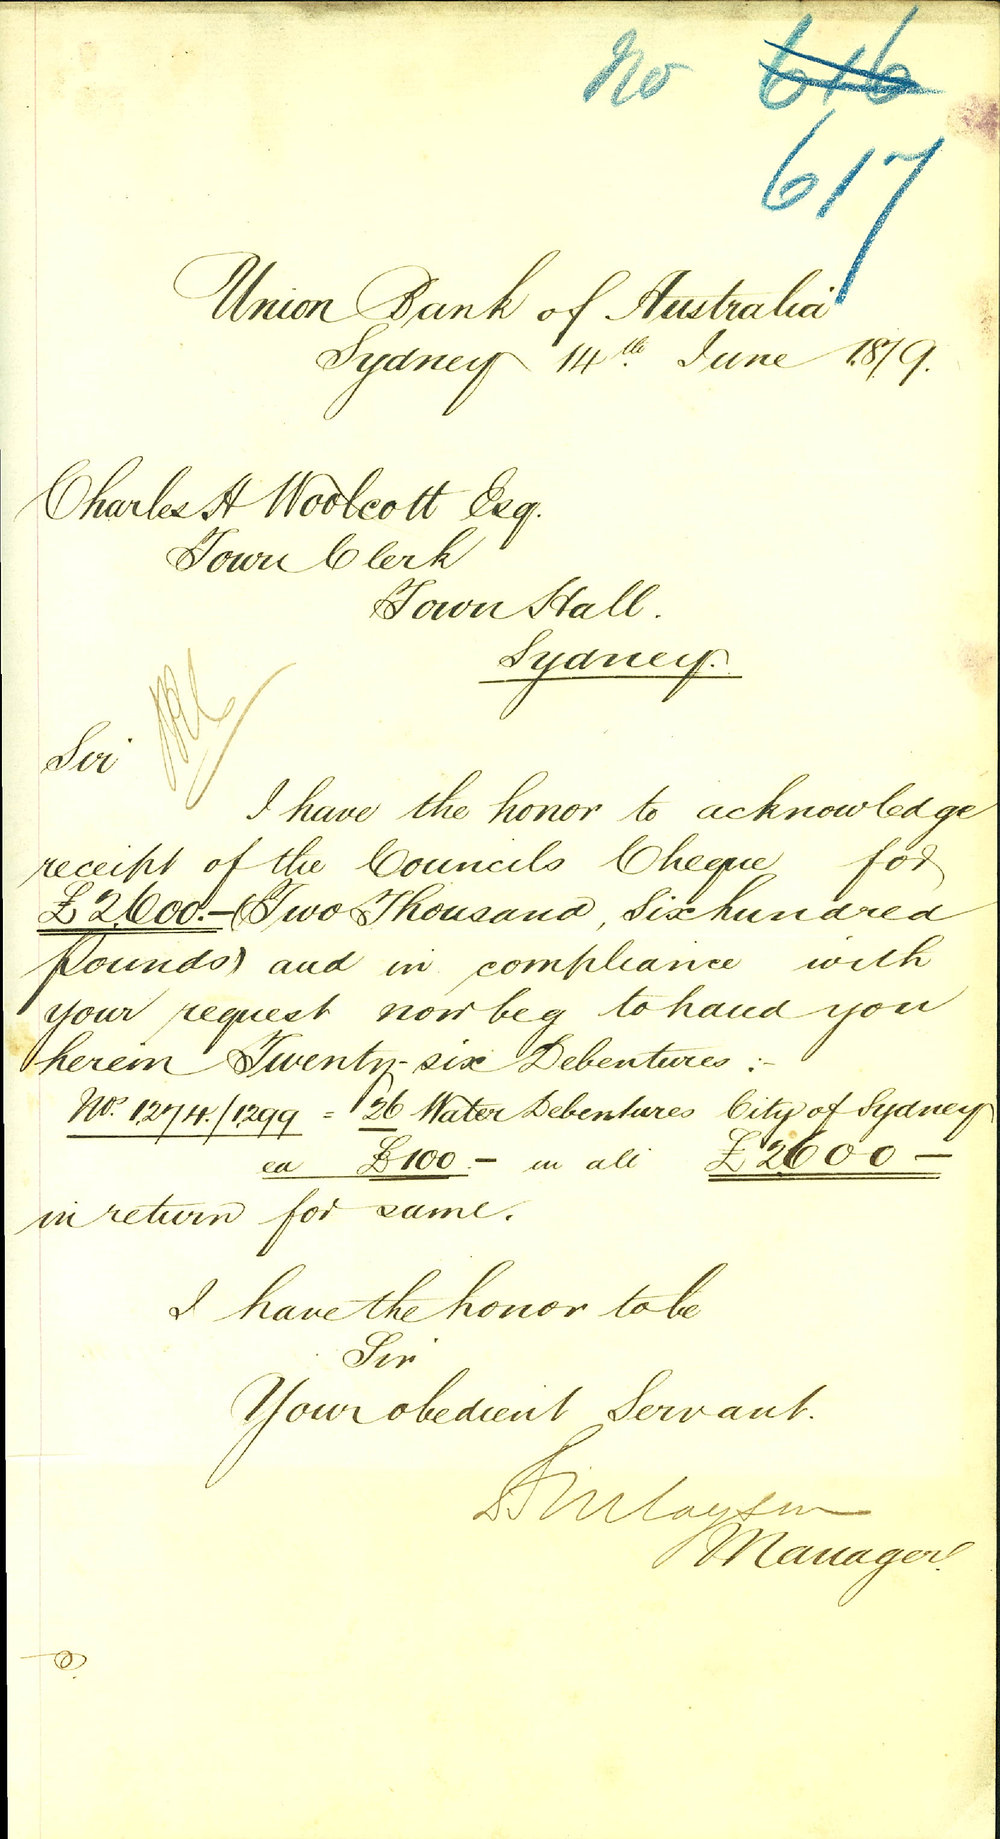 No 616
617
Union Bank of Australia
Sydney 14th June 1879.
Charles H Woolcott Esq.
Town Clerk
Town Hall.
Sydney.
Sir
I have the honor to acknowledge
receipt of the Councils Cheque for
£2600.- (Two Thousand, Six hundred
Pounds) and in compliance with
your request now beg to hand you
herein Twenty-six Debentures :-
No. 1274./1299 = 26 Water Debentures City of Sydney
ea £100.- in all £2600-
in return for same.
I have the honor to be
Sir
Your obedient Servant.
Manager.